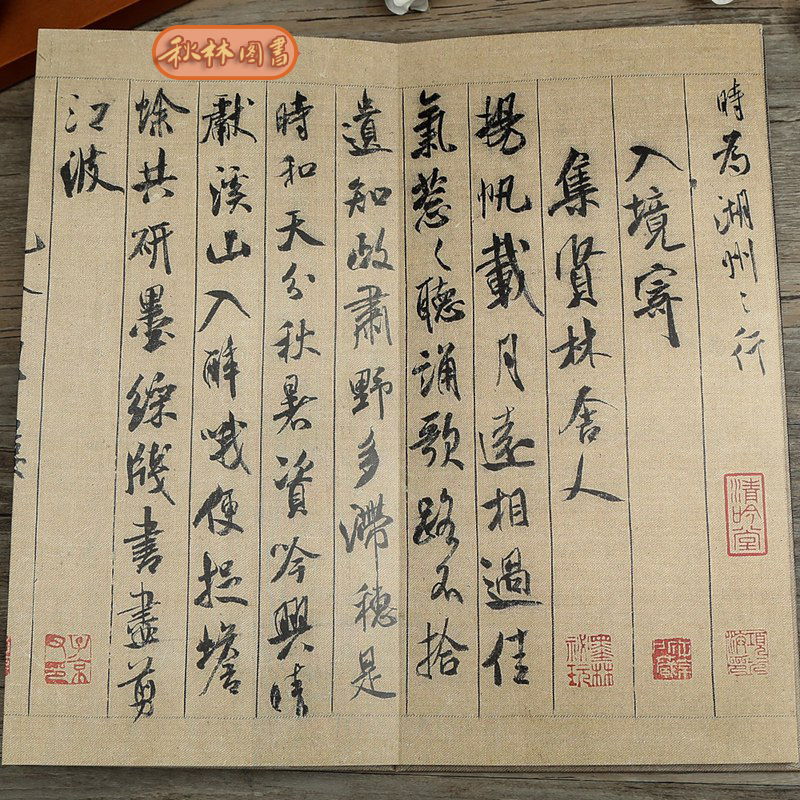 秋林图書
時為湖州之行
入境寄
集賢林舍人
揚帆載月遠相過佳
氣葱々聽誦歌路不拾
遺知政肅野多滯穗是
時和天分秋暑資吟興晴
獻溪山入醉哦便捉蟾
蜍共研墨綵牋書盡剪
江波
清吟堂
墨林祕玩
子京父印